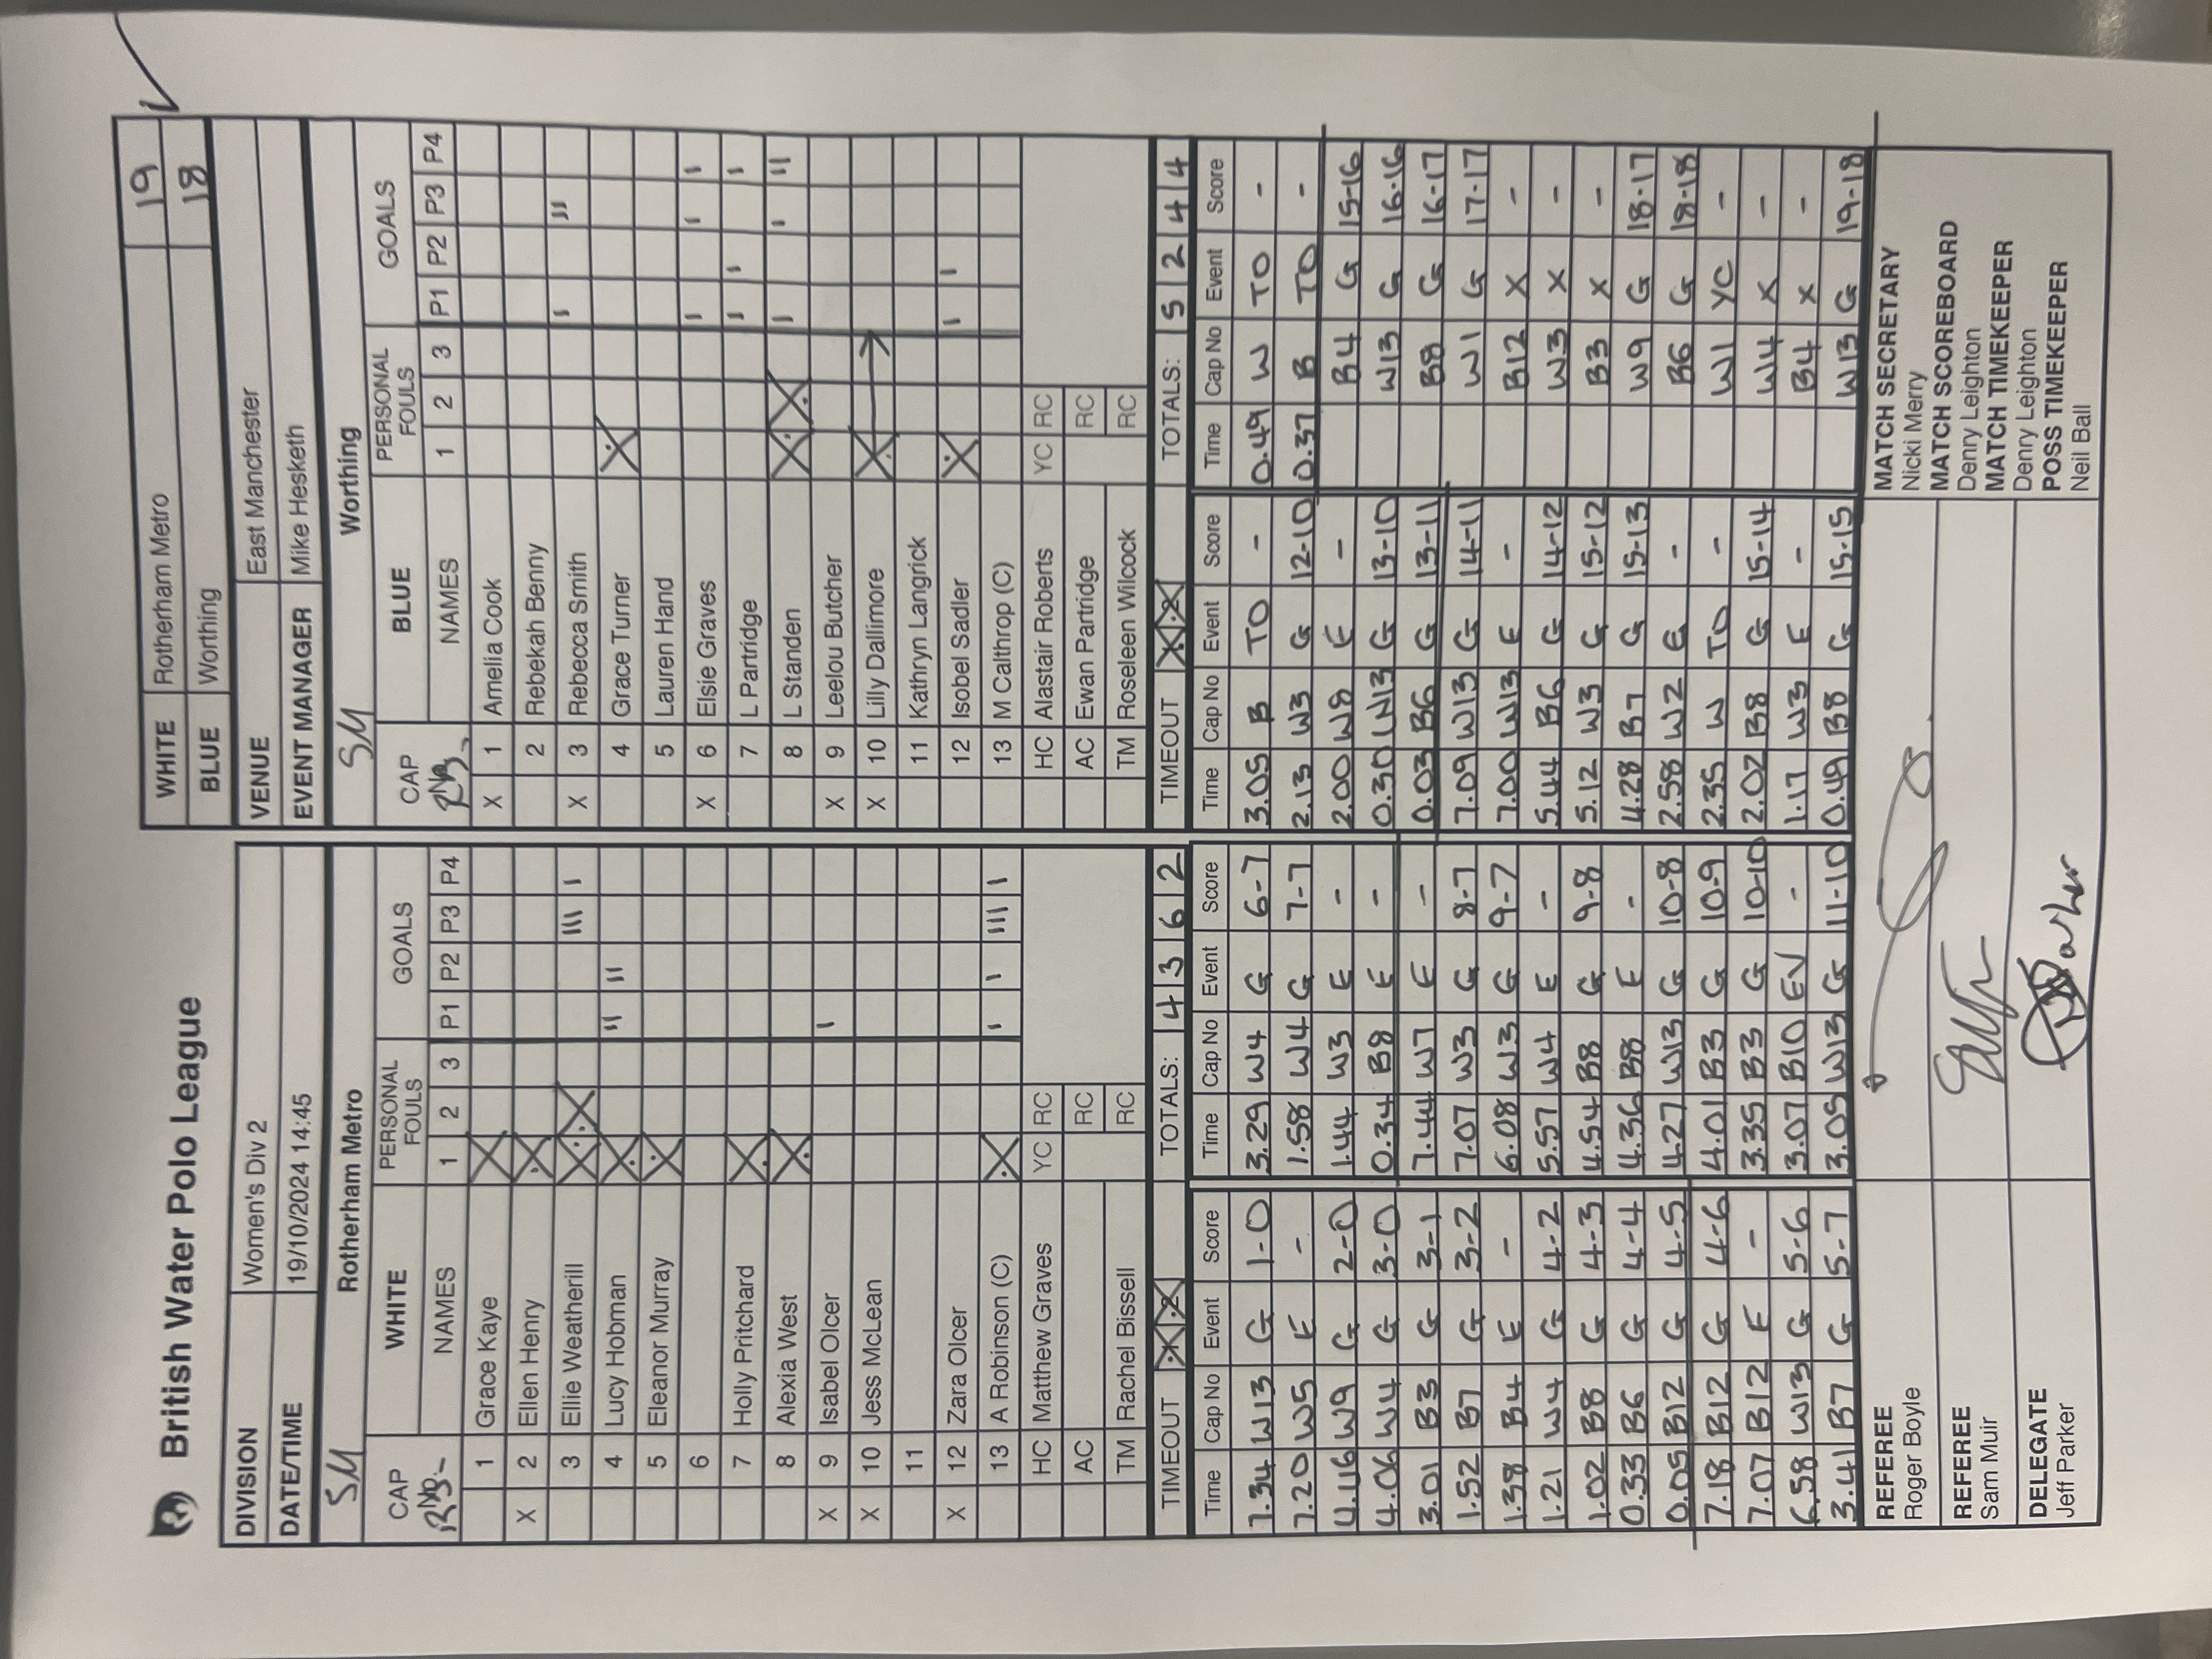 British Water Polo League
DIVISION Women's Div 2
DATE/TIME 19/10/2024 14:45
WHITE Rotherham Metro 19
BLUE Worthing 18
VENUE East Manchester
EVENT MANAGER Mike Hesketh
SM Rotherham Metro
CAP WHITE PERSONAL FOULS GOALS
NAMES 1 2 3 P1 P2 P3 P4
1 Grace Kaye X
X 2 Ellen Henry X
3 Ellie Weatherill X X III I
4 Lucy Hobman X II II
5 Eleanor Murray X
6
7 Holly Pritchard X
8 Alexia West X
X 9 Isabel Olcer I
X 10 Jess McLean
11
X 12 Zara Olcer
13 A Robinson (C) X I I III I
HC Matthew Graves YC RC
AC RC
TM Rachel Bissell RC
TIMEOUT X X TOTALS: 4 3 6 2
SM Worthing
CAP BLUE PERSONAL FOULS GOALS
NAMES 1 2 3 P1 P2 P3 P4
X 1 Amelia Cook
2 Rebekah Benny
X 3 Rebecca Smith I II
4 Grace Turner X
5 Lauren Hand
X 6 Elsie Graves I I I
7 L Partridge I I I
8 L Standen X X I I II
X 9 Leelou Butcher
X 10 Lilly Dallimore X
11 Kathryn Langrick
12 Isobel Sadler X I I
13 M Calthrop (C)
HC Alastair Roberts YC RC
AC Ewan Partridge RC
TM Roseleen Wilcock RC
TIMEOUT X X TOTALS: 5 2 4 4
Time Cap No Event Score
7.34 W13 G 1-0
7.20 W5 E -
4.16 W9 G 2-0
4.06 W4 G 3-0
3.01 B3 G 3-1
1.52 B7 G 3-2
1.38 B4 E -
1.21 W4 G 4-2
1.02 B8 G 4-3
0.33 B6 G 4-4
0.05 B12 G 4-5
7.18 B12 G 4-6
7.07 B12 E -
6.58 W13 G 5-6
3.41 B7 G 5-7
Time Cap No Event Score
3.29 W4 G 6-7
1.58 W4 G 7-7
1.44 W3 E -
0.34 B8 E -
7.44 W7 E -
7.07 W3 G 8-7
6.08 W3 G 9-7
5.57 W4 E -
4.54 B8 G 9-8
4.36 B8 E -
4.27 W13 G 10-8
4.01 B3 G 10-9
3.35 B3 G 10-10
3.07 B10 EV -
3.05 W13 G 11-10
Time Cap No Event Score
3.05 B TO -
2.13 W3 G 12-10
2.00 W8 E -
0.30 W13 G 13-10
0.03 B6 G 13-11
7.09 W13 G 14-11
7.00 W13 E -
5.44 B6 G 14-12
5.12 W3 G 15-12
4.28 B7 G 15-13
2.58 W2 E -
2.35 W TO -
2.02 B8 G 15-14
1.17 W3 E -
0.49 B8 G 15-15
Time Cap No Event Score
0.49 W TO -
0.37 B TO -
B4 G 15-16
W13 G 16-16
B8 G 16-17
W1 G 17-17
B12 X -
W3 X -
B3 X -
W9 G 18-17
B6 G 18-18
W1 YC -
W4 X -
B4 X -
W13 G 19-18
REFEREE
Roger Boyle
REFEREE
Sam Muir
DELEGATE
Jeff Parker
MATCH SECRETARY
Nicki Merry
MATCH SCOREBOARD
Denry Leighton
MATCH TIMEKEEPER
Denry Leighton
POSS TIMEKEEPER
Neil Ball